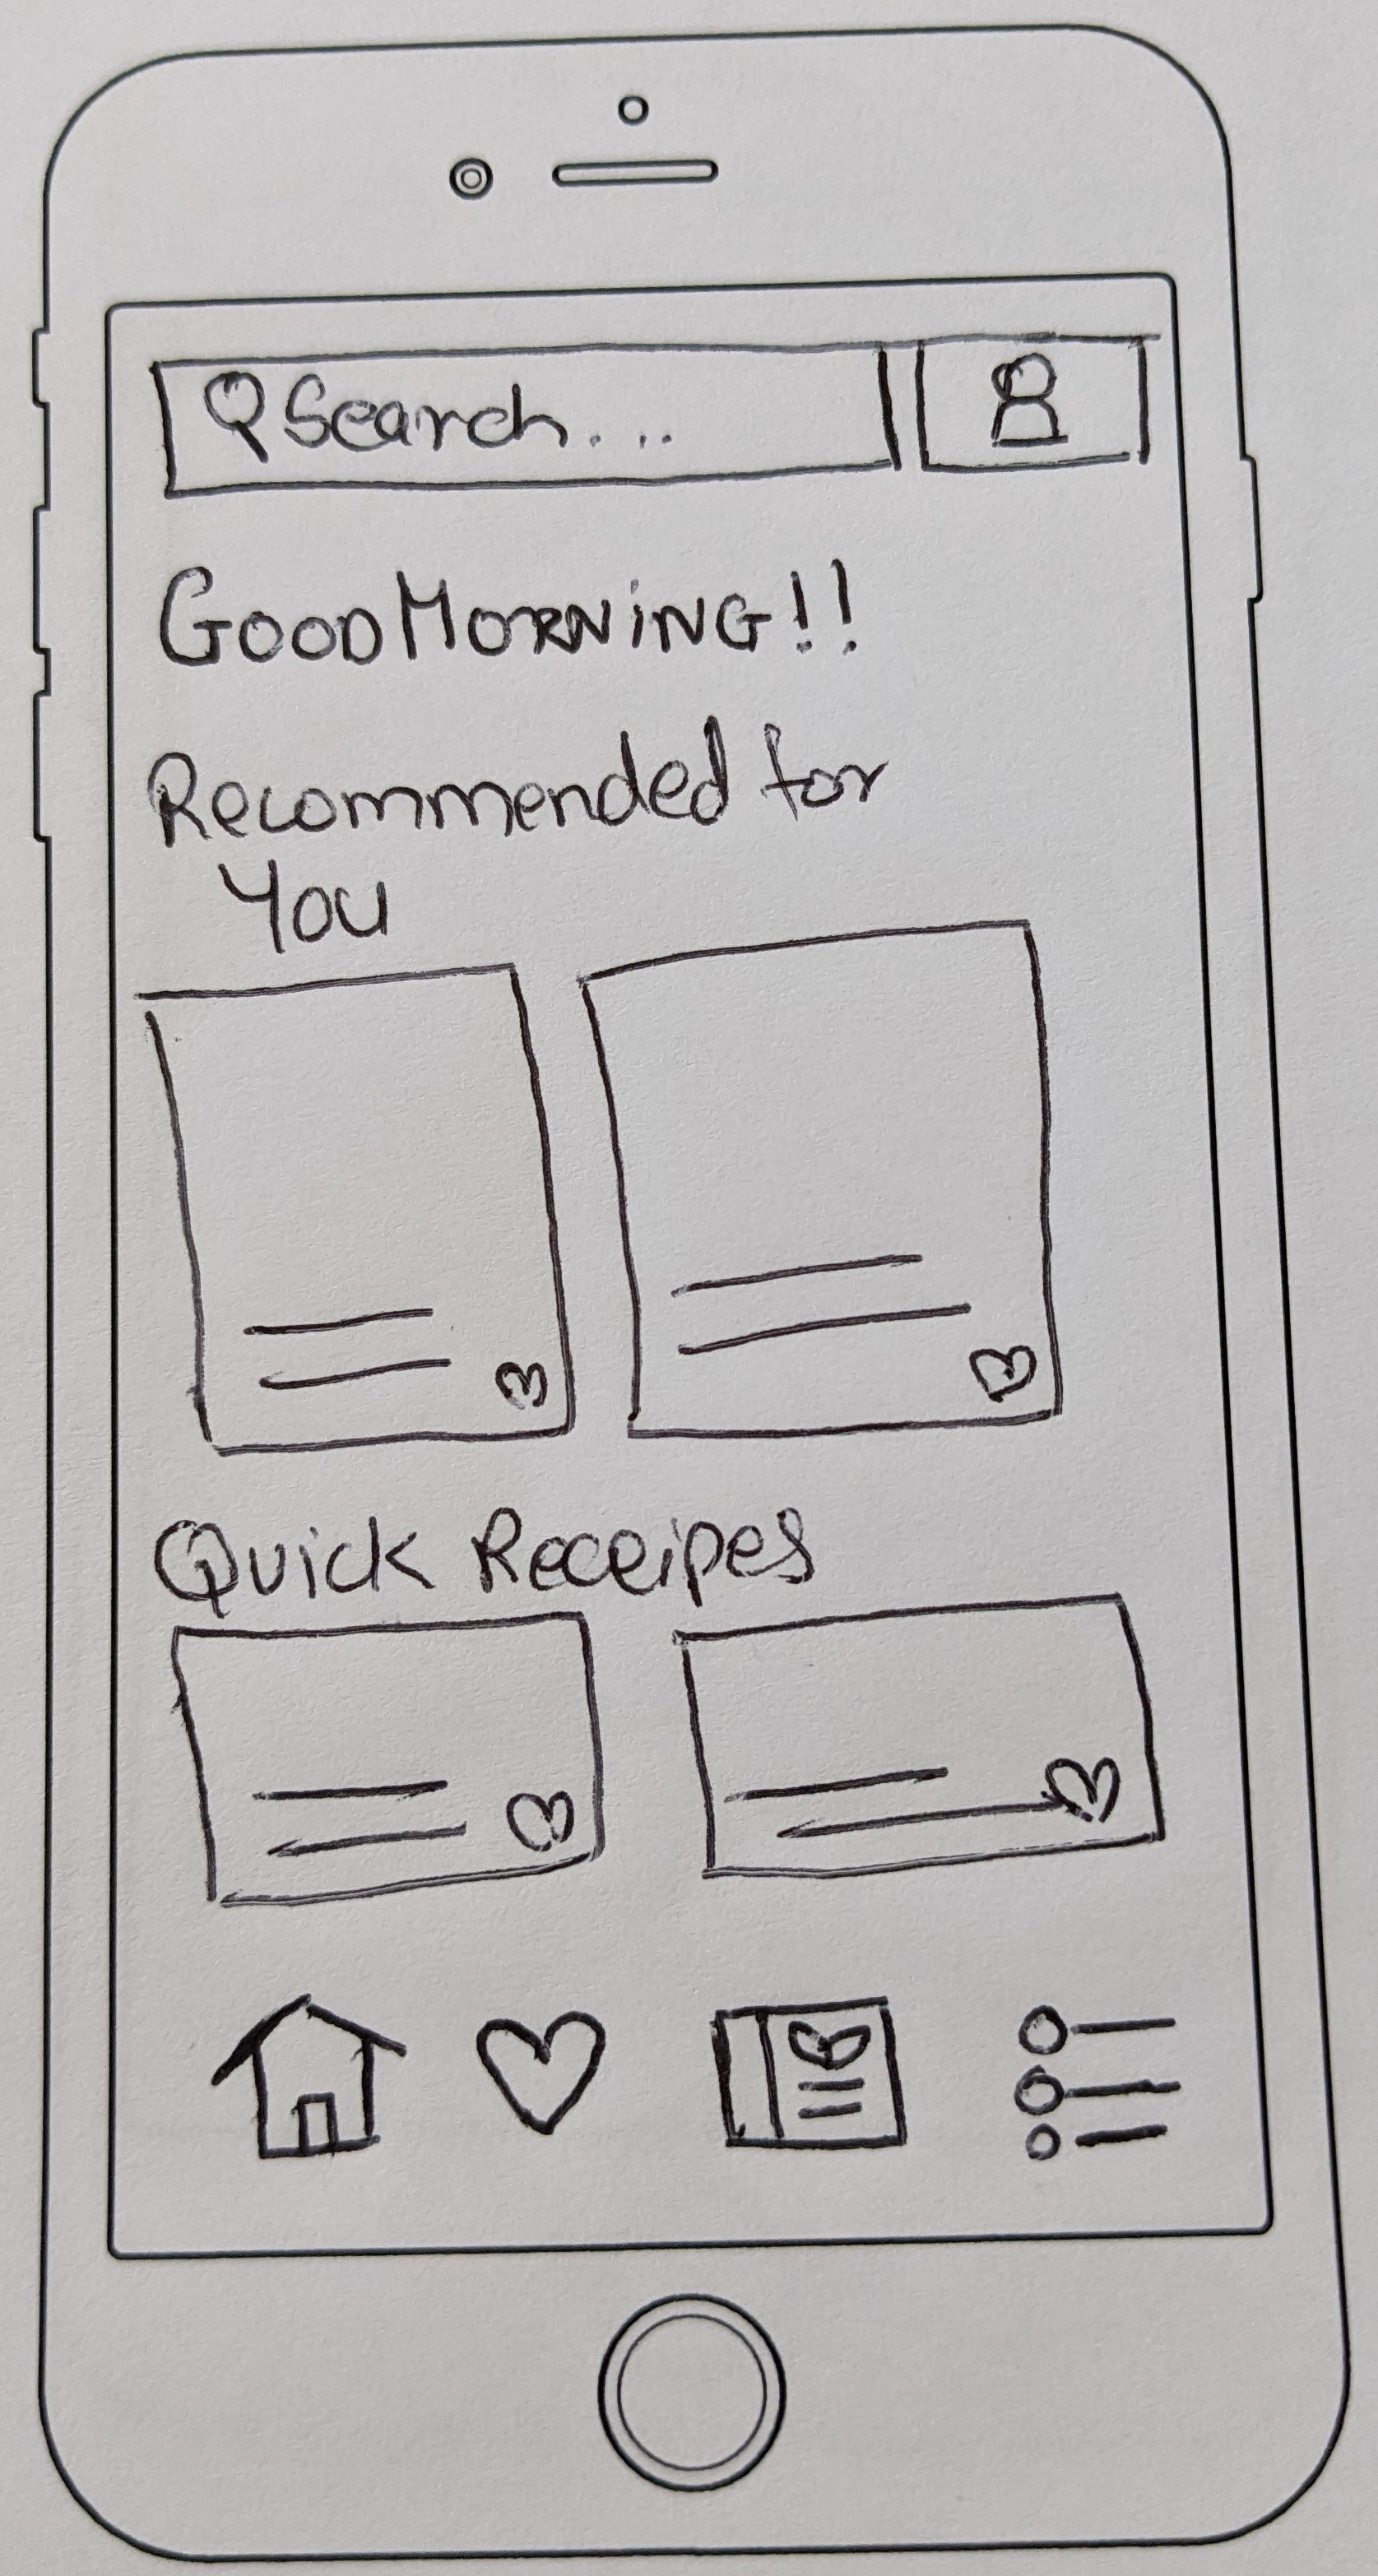 Search...
GOODMORNiNG!!
Recommended for
You
Quick Receipes